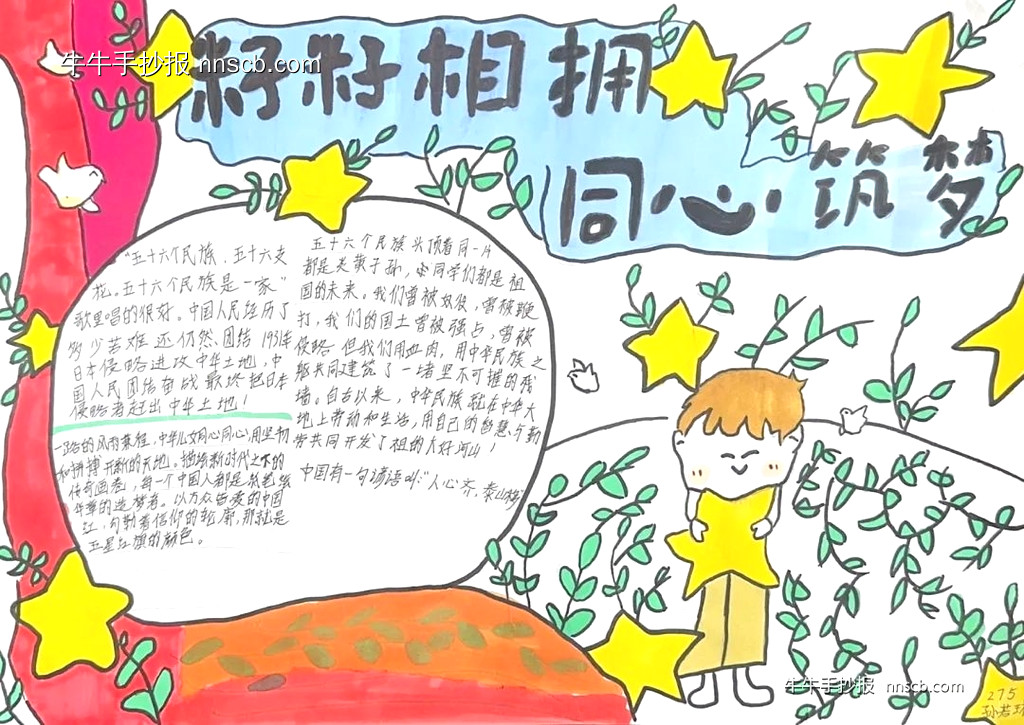 牛牛手抄报 nnscb.com
籽籽相拥
同心筑梦
"五十六个民族、五十六支
花。五十六个民族是一家"
歌里唱的很好。中国人民经历了
多少苦难还仍然团结1931年
日本侵略进攻中华土地,中
国人民团结奋战最终把日本
侵略者赶出中华土地!
一路的风雨兼程,中华儿女同心同心,用坚韧
和拼搏开新的天地。描绘新时代之下的
传奇画卷,每一个中国人都是
年华的造梦者。以万众皆爱的中国
红,勾勒着信仰的轮廓,那就是
五星红旗的颜色。
五十六个民族头顶着同一片
都是炎黄子孙,
同学们都是祖
国的未来。我们曾被奴役,曾被鞭
打,我们的国土曾被强占,曾被
侵略但我们用血肉,用中华民族之
躯共同建筑了一堵坚不可摧的
墙。自古以来,中华民族就在中华大
地上劳动和生活,用自己的智慧与勤
劳共同开发了祖的大好河山!
中国有一句谚语叫:"人心齐,泰山移
牛牛手抄报 nnscb.com
275
孙若